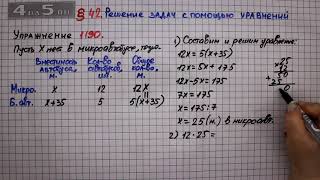 4 на 5
§ 42. Решение задач с помощью уравнений
Упражнение 1190.
Пусть x мест в микроавтобусе, тогда.
Вместимость автобуса, м. Кол-во автобусов, шт. Общее кол-во, м.
Микро. x 12 12x
||
Б. авт. x+35 5 5(x+35)
1) Составим и решим уравнение:
12x = 5(x+35)
12x = 5x + 175
12x - 5x = 175
7x = 175
x = 175 : 7
x = 25 (м.) в микроавт.
2) 12 · 25 =
x 25
12
50
+ 25
0